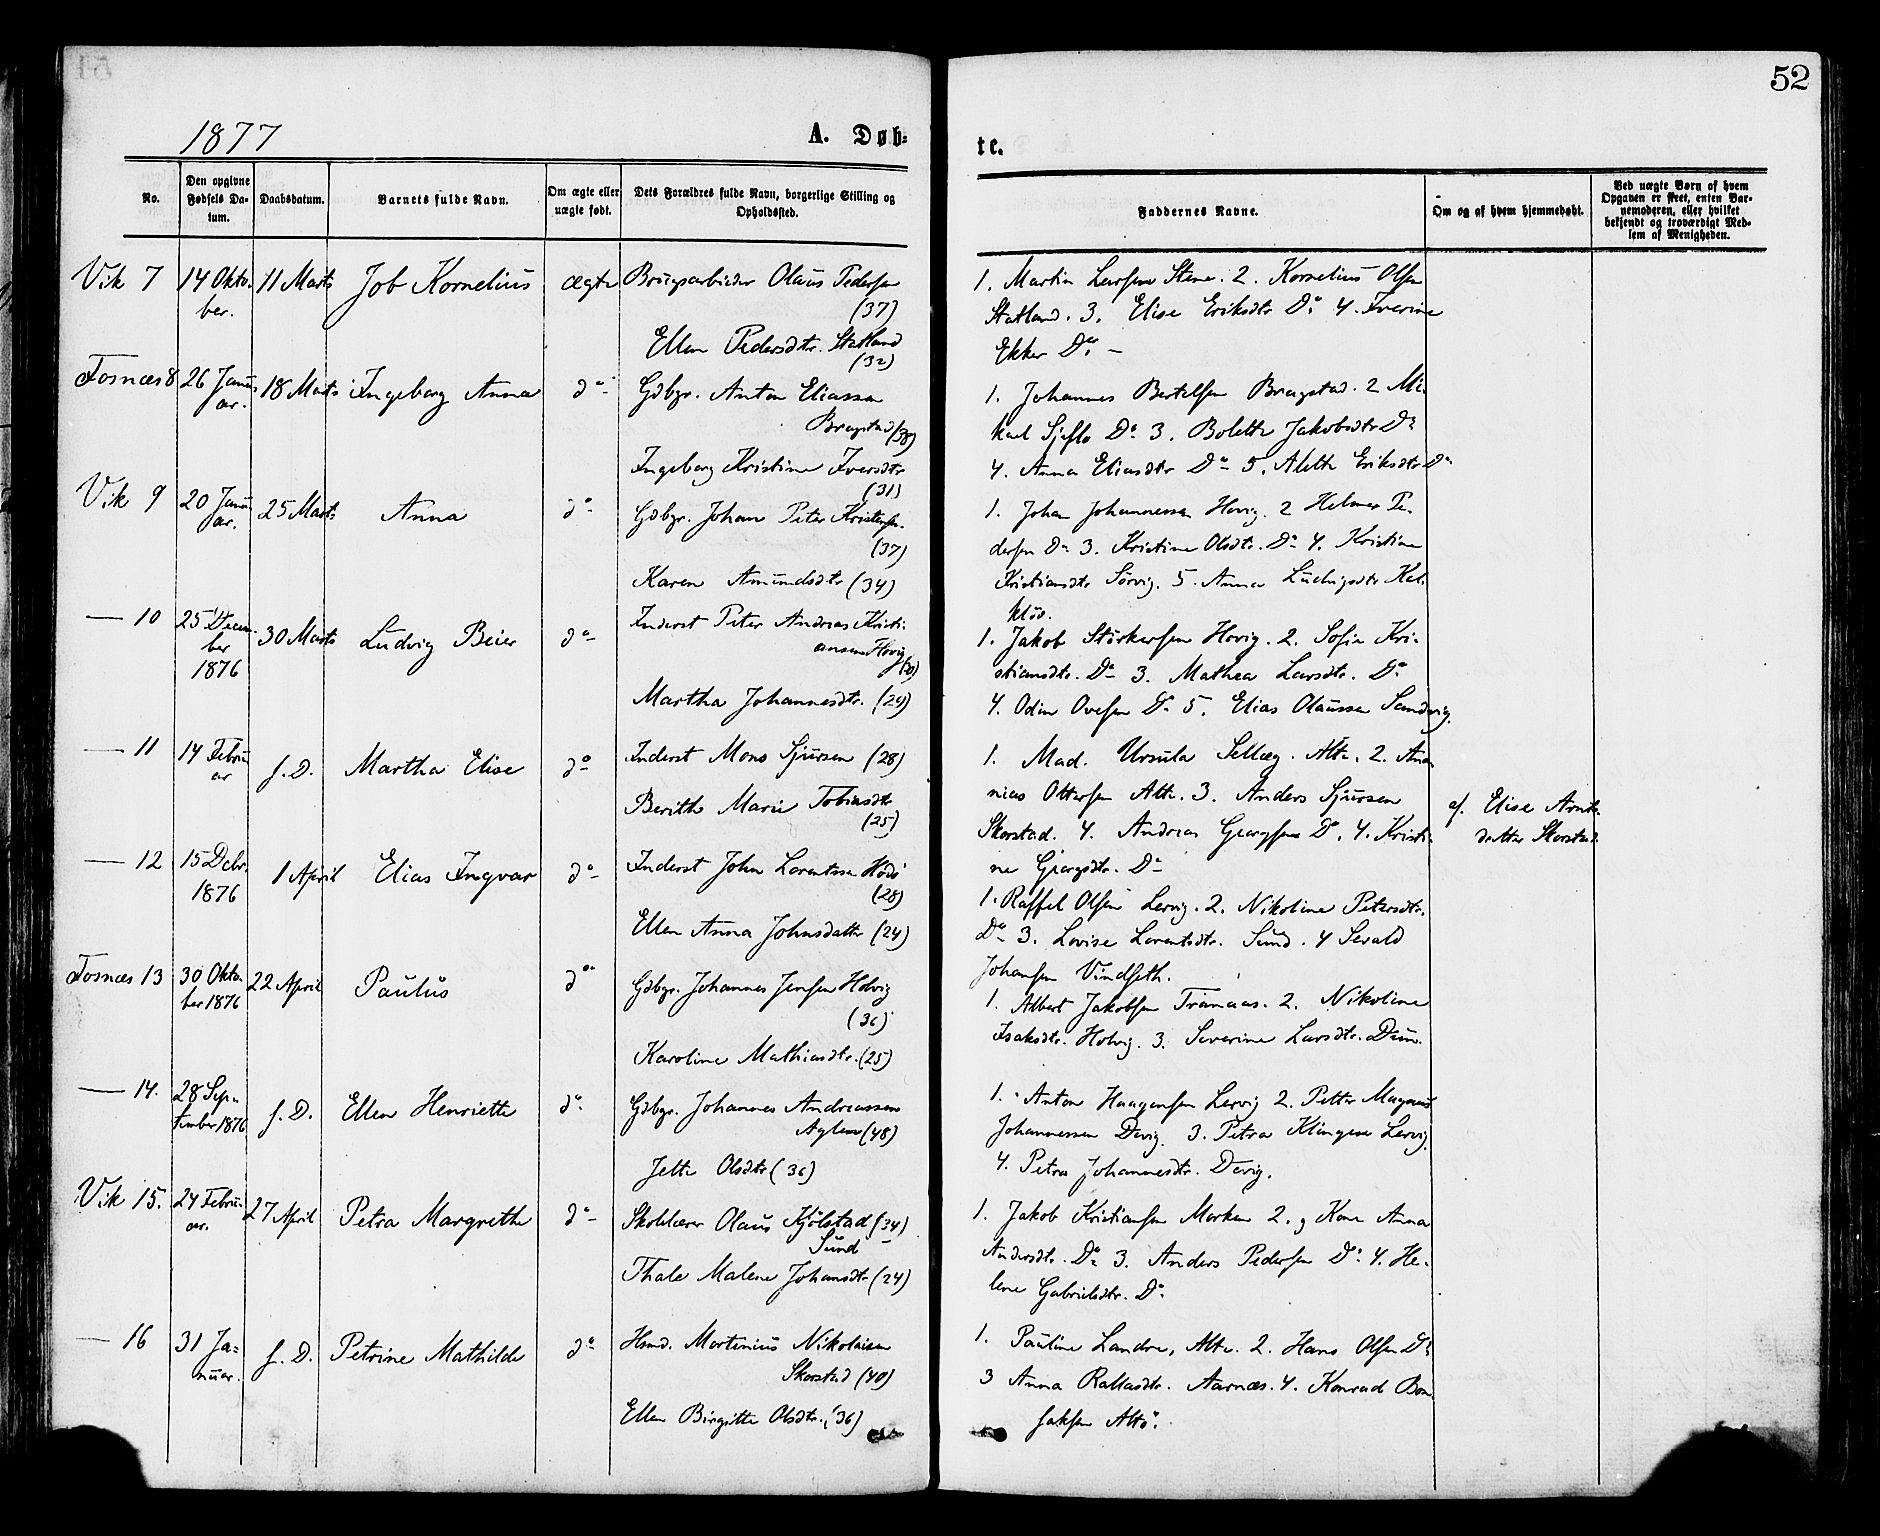 52
1877
A. Døb-
te.
No.
Den opgivne Fødsels Da-
tum.
Daabsdatum.
Barnets fulde Navn.
Om ægte eller
uægte født.
Dets Forældres fulde Navn, borgerlige Stilling og
Opholdssted.
Faddernes Navne.
Om og af hvem hjemmedøbt.
Ved uægte Børn af hvem
Opgaven er skeet, enten Bar-
nemoderen, eller hvilket
bekjendt og troværdigt Med-
lem af Menigheden.
Vik 7
14 Okto-
ber.
11 Marts
Job Kornelius
ægte
Brugsarbeider Olaus Pedersen
(37)
Ellen Pedersdtr. Statland
(32)
1. Martin Larsen Stene. 2. Kornelius Olsen
Statland. 3. Elise Eriksdtr Do 4. Iverine
Ekker Do. —
Fosnæs 8
26 Janu-
ar.
18 Marts
Ingeborg Anna
do
Gdbgr. Anton Eliassen
Bragstad (38)
Ingeborg Kristine Iversdtr
(31)
1. Johannes Bertelsen Bragstad. 2 Mi-
kael Do 3. Bolette Jakobsdtr Do
4. Anna Eliasdtr Do 5. Aleth Eriksdtr Do
Vik 9
20 Janu-
ar.
25 Marts
Anna
do
Gdbgr. Johan Peter Kristensen.
(37)
Karen Amundsdtr (34)
1. Johan Johannessen Hovig. 2 Helmer Pe-
dersen Do 3. Kristine Olsdtr. Do 4. Kristine
Kristiansdtr Sørvig. 5. Anna Ludvigsdtr Kal-
kløv.
— 10
25 Decem-
ber
1876
30 Marts
Ludvig Beier
do
Inderst Peter Andreas Kristi-
ansen Hovig
Martha Johannesdtr. (29)
1. Jakob Størkersen Hovig. 2. Sofie Kri-
stiansdtr. Do 3. Mathea Larsdtr. Do
4. Odin Ovesen Do 5. Elias Olaussen Sandvig.
— 11
14 Febru-
ar
s. D.
Martha Elise
do
Inderst Mons Sjursen (28)
Berith Marie Tobiasdtr
(25)
1. Mad. Ursula Selläg. Altø. 2. Ana-
nias Ottersen Altø. 3. Anders Sjursen
Skorstad. 4. Andreas Georgsen Do. 4. Kristi-
ne Georgsdtr. Do
af. Elise Arnts-
datter Skorstad.
— 12
15 Decbr.
1876
1 April
Elias Ingvar
do
Inderst John Lorentsen Hødø
(28)
Ellen Anna Johnsdatter (24)
1. Raffel Olsen Lervig. 2. Nikoline Petersdtr.
Do 3. Lovise Lorentsdtr. Sund. 4 Sevald
Johansen Vindseth.
Fosnæs 13
30 Okto-
ber 1876
22 April
Paulus
do
Gdbgr. Johannes Jensen Holvig
(36)
Karoline Mathiasdtr. (25)
1. Albert Jakobsen Tranaas. 2. Nikoline
Isaksdtr. Holvig. 3. Severine Larsdtr. Duun.
— 14.
28 Sep-
tember 1876
s. D.
Ellen Henriette
do.
Gdbgr. Johannes Andreassen
Aglen (48)
Jette Olsdtr (36)
1. Anton Haagensen Lervig 2. Petter Magnus
Johannessen Devig. 3. Petra Klingen Lervig.
4. Petra Johannesdtr. Devig.
Vik 15.
24 Febru-
ar.
27 April
Petra Margrethe
do
Skolelærer Olaus Kjølstad (34)
Sund
Thale Malene Johansdtr (24)
1. Jakob Kristiansen Marken 2. og Kone Anna
Andersdtr. Do 3. Anders Pedersen Do 4. He-
lene Gabrielsdtr. Do
— 16
31 Ja-
nuar.
s. D.
Petrine Mathilde
do
Hmd. Martinius Nikolaisen
Skorstad (40)
Ellen Birgitte Olsdtr. (36)
1. Pauline Landre, Altø. 2. Hans Olsen Do
3 Anna Aarnæs. 4. Konrad Bon-
saksen Altø.